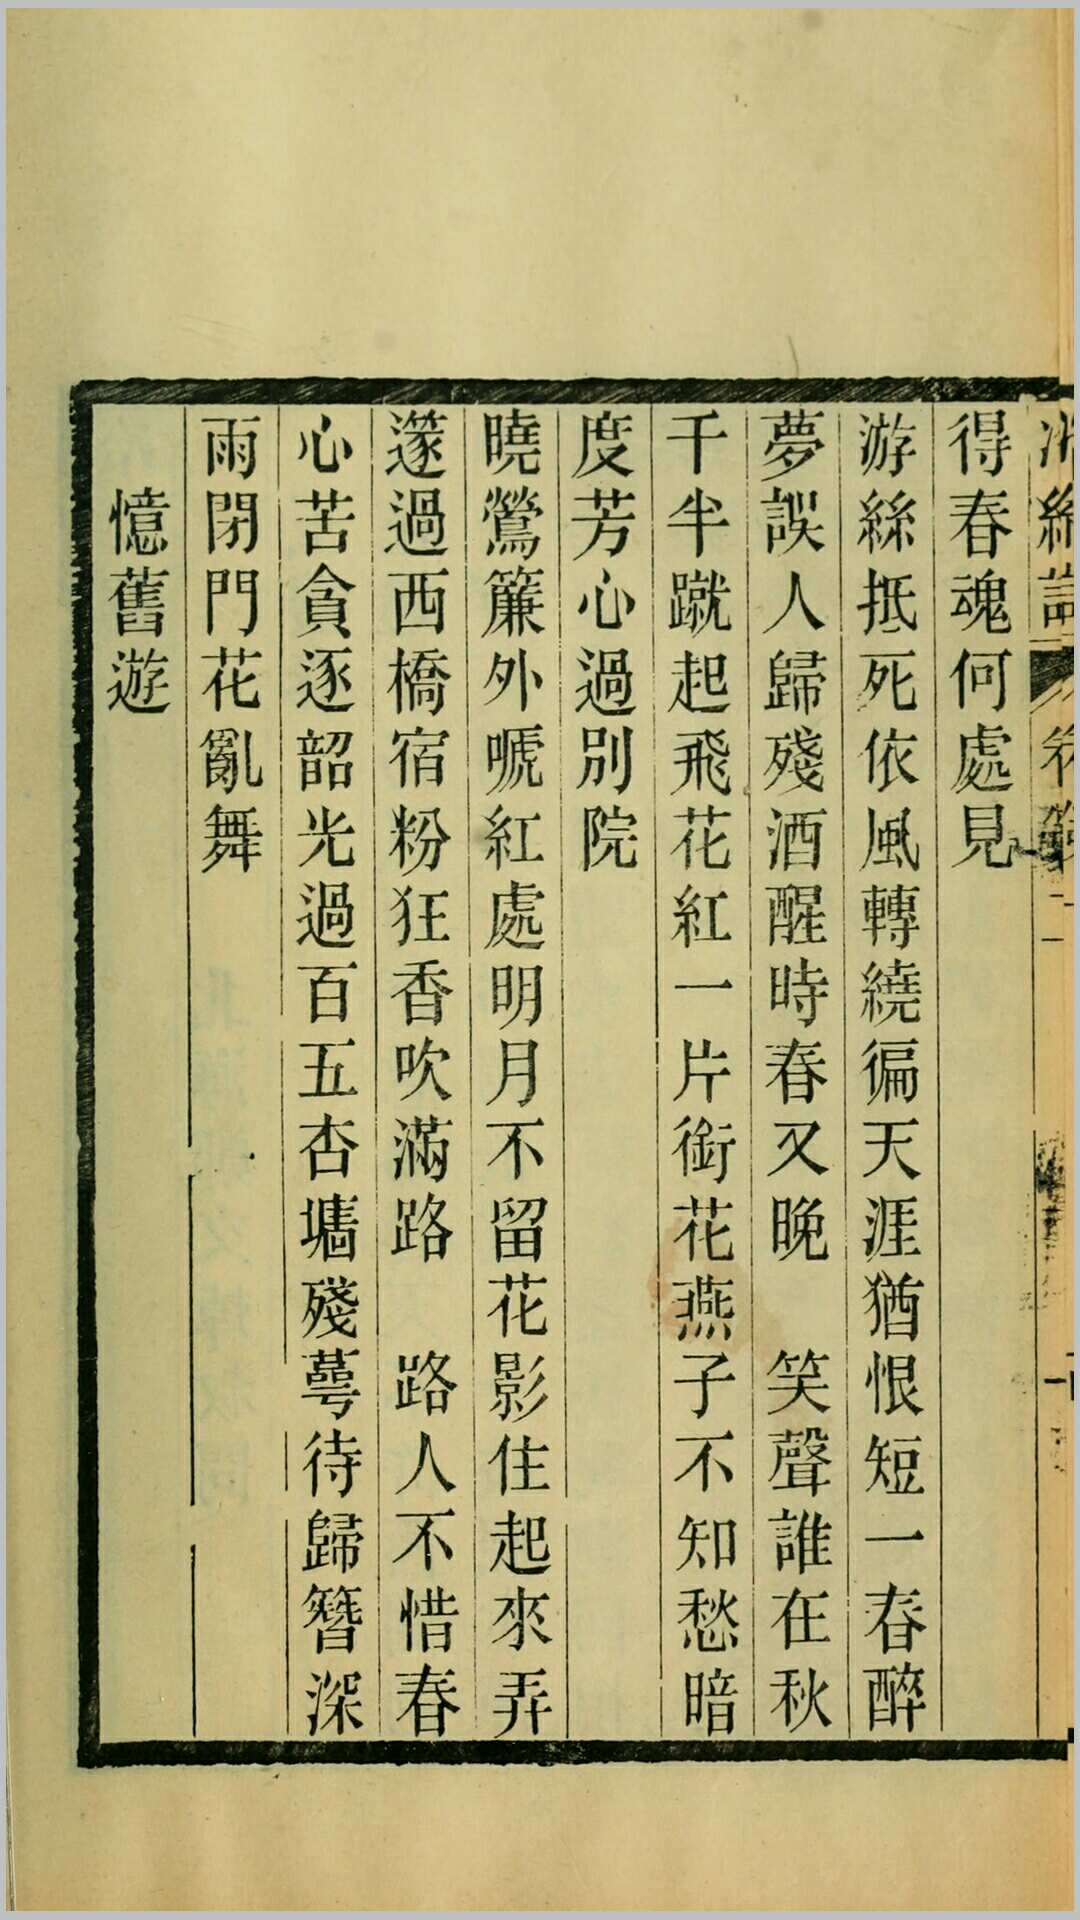 得春魂何處見
游絲抵死依風轉繞徧天涯猶恨短一春醉
夢誤人歸殘酒醒時春又晚　笑聲誰在秋
千半蹴起飛花紅一片銜花燕子不知愁暗
度芳心過別院
曉鶯簾外嗁紅處明月不留花影住起來弄
篴過西橋宿粉狂香吹滿路　路人不惜春
心苦貪逐韶光過百五杏牆殘萼待歸簪深
雨閉門花亂舞
憶舊遊